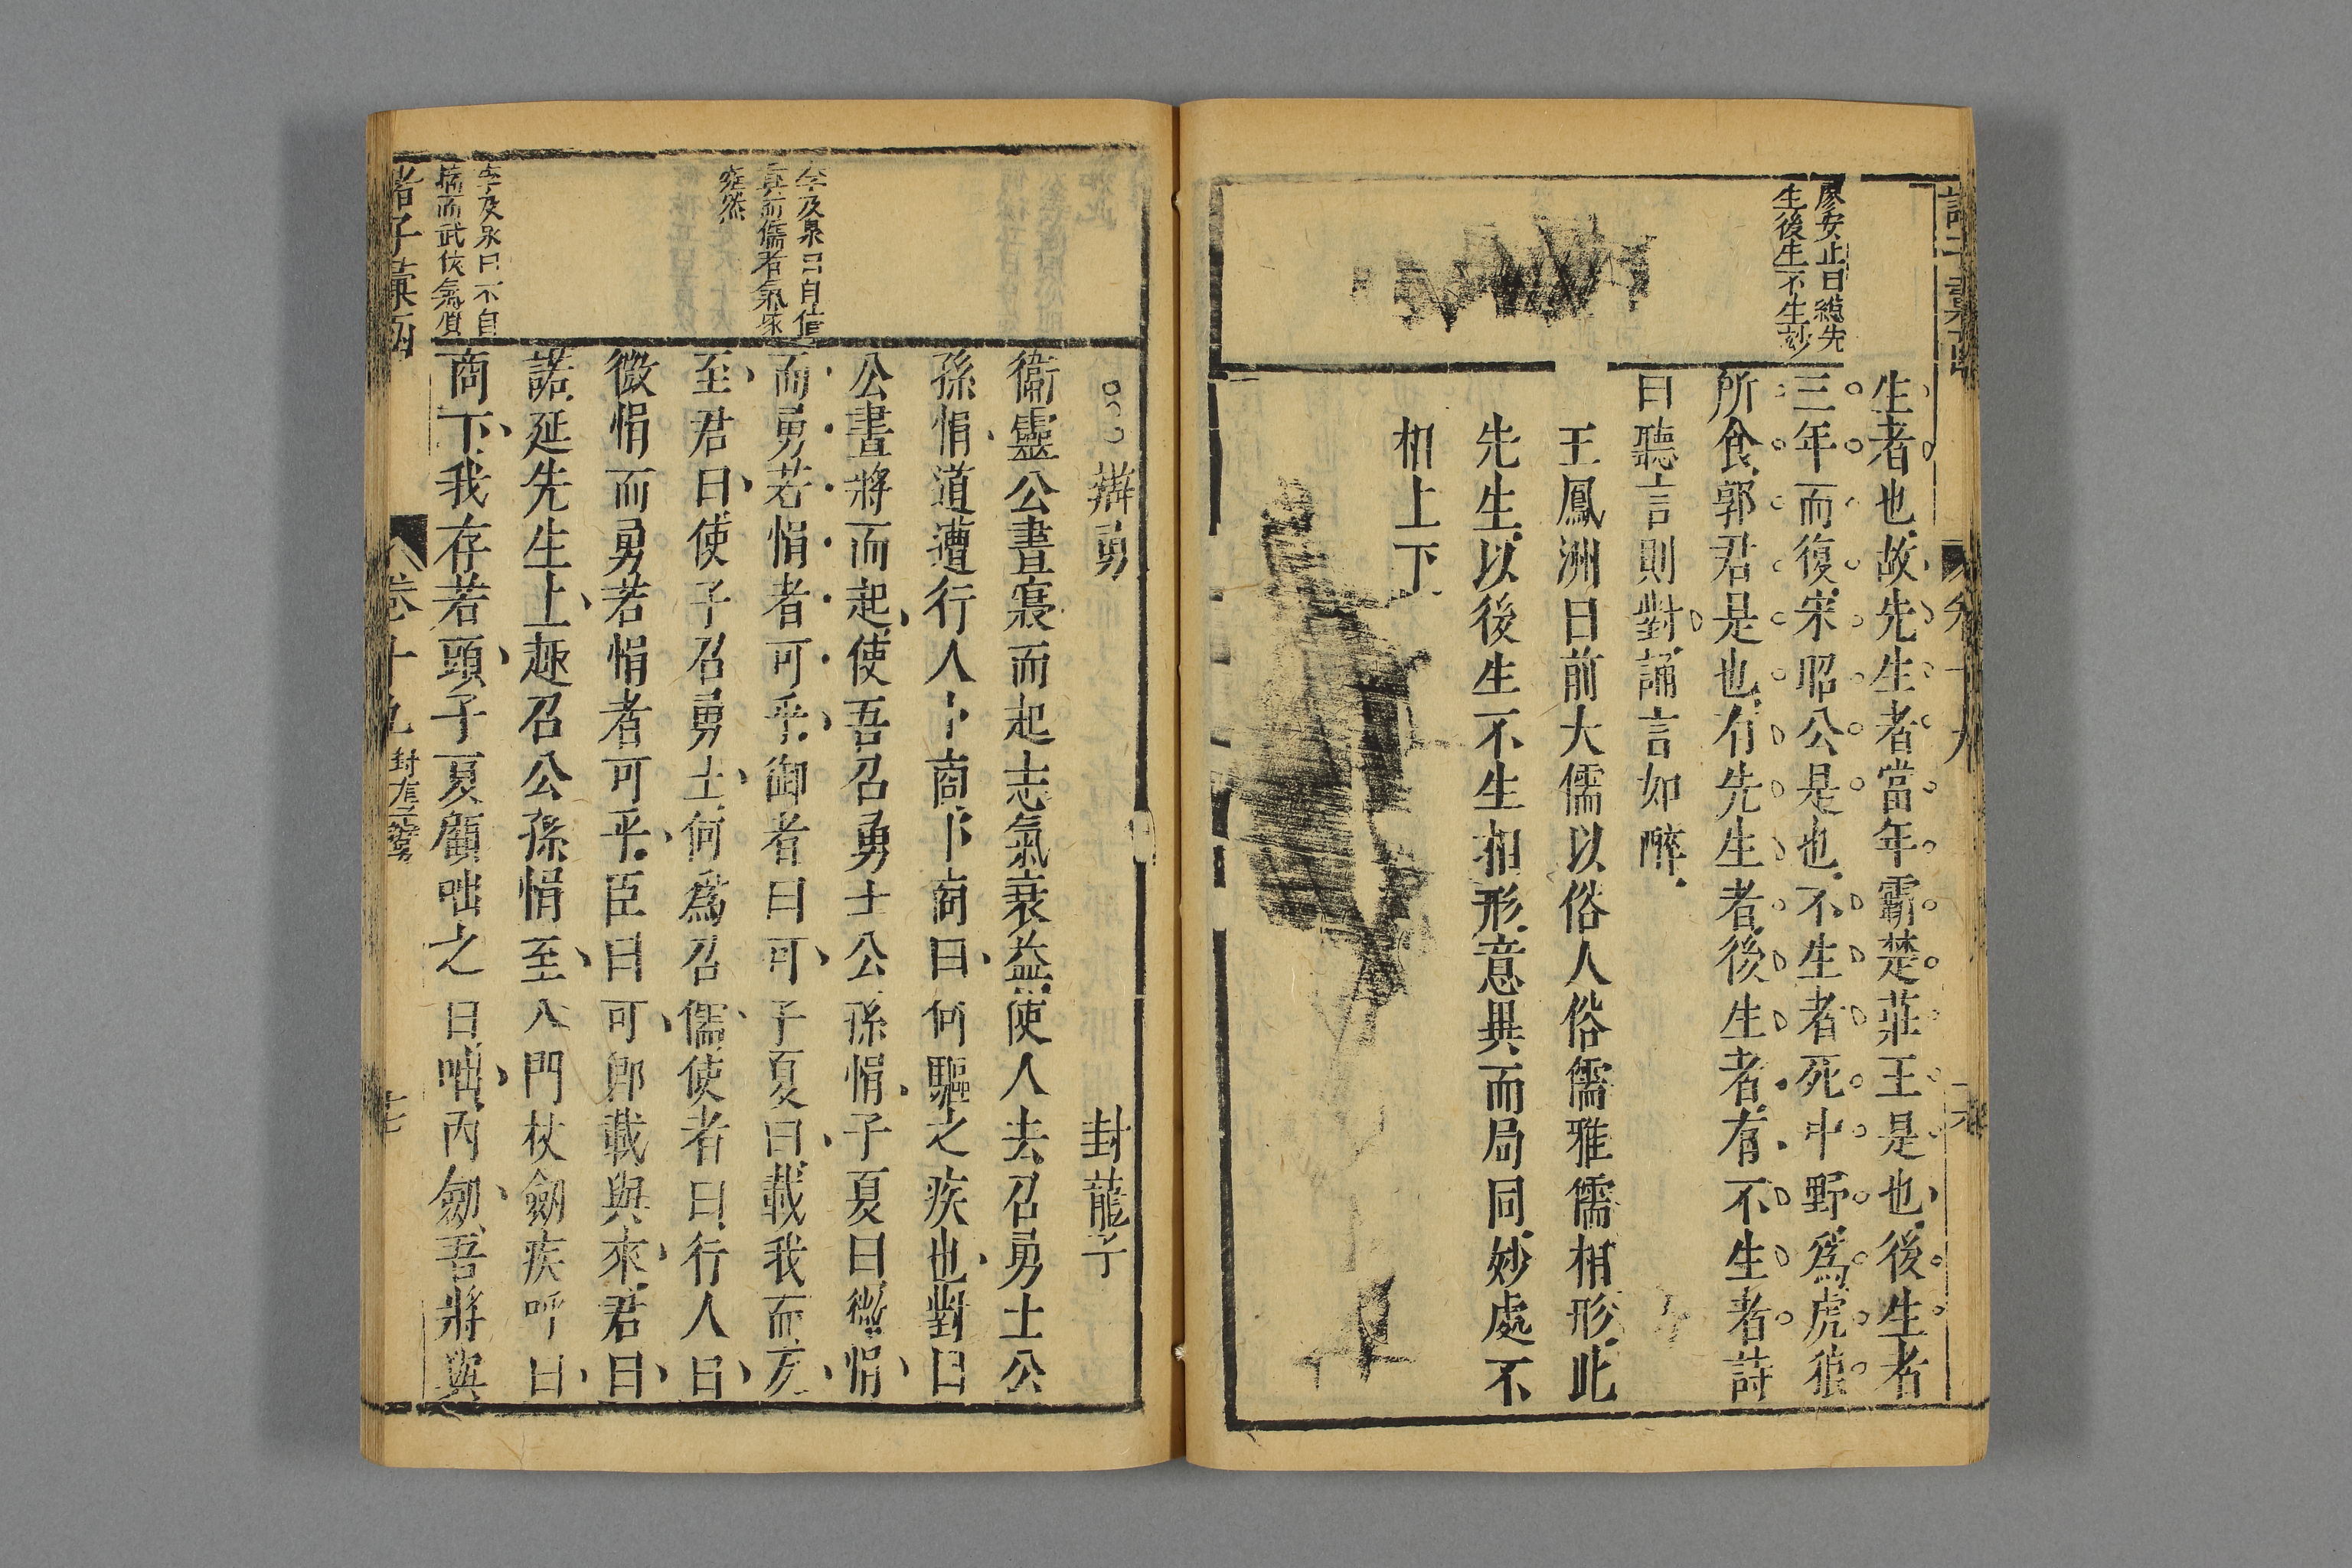 廖安止曰總先
生後生不生妙
生者也故先生者當年霸楚莊王是也後生者
三年而復宋昭公是也不生者死中野爲虎狼
所食郭君是也有先生者後生者有不生者詩
曰聽言則對誦言如醉
王鳳洲曰前大儒以俗人俗儒雅儒相形此
先生以後生不生相形意異而局同妙處不
相上下
辯勇
封龍子
衞靈公晝寢而起志氣衰益使人去召勇士公
孫悁道遭行人卜商卜商曰何驅之疾也對曰
公晝將而起使吾召勇士公孫悁子夏曰微悁
李及泉曰自信
真而儒者氣象
而勇若悁者可乎御者曰可子夏曰載我而
至君曰使子召勇士何爲召儒使者曰行人曰
微悁而勇若悁者可乎臣曰可卽載與來君曰
諾延先生上趣召公孫悁至入門杖劒疾呼曰
李及泉曰不自
商下我存若頭子夏顧咄之曰咄內劒吾將與
諸子彙函
卷十九